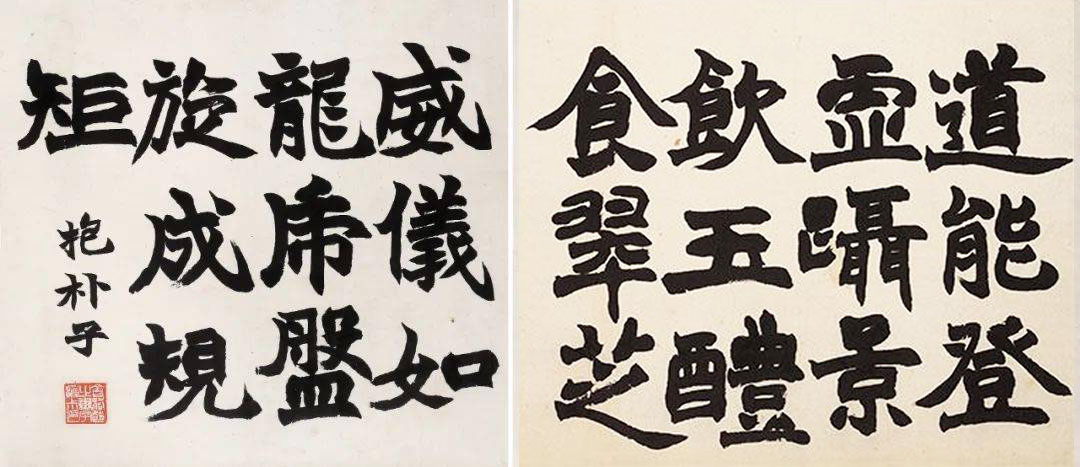 道能登
虛躡景
飲玉醴
食翠芝
威儀如
龍虎盤
旋成規
矩
抱朴子